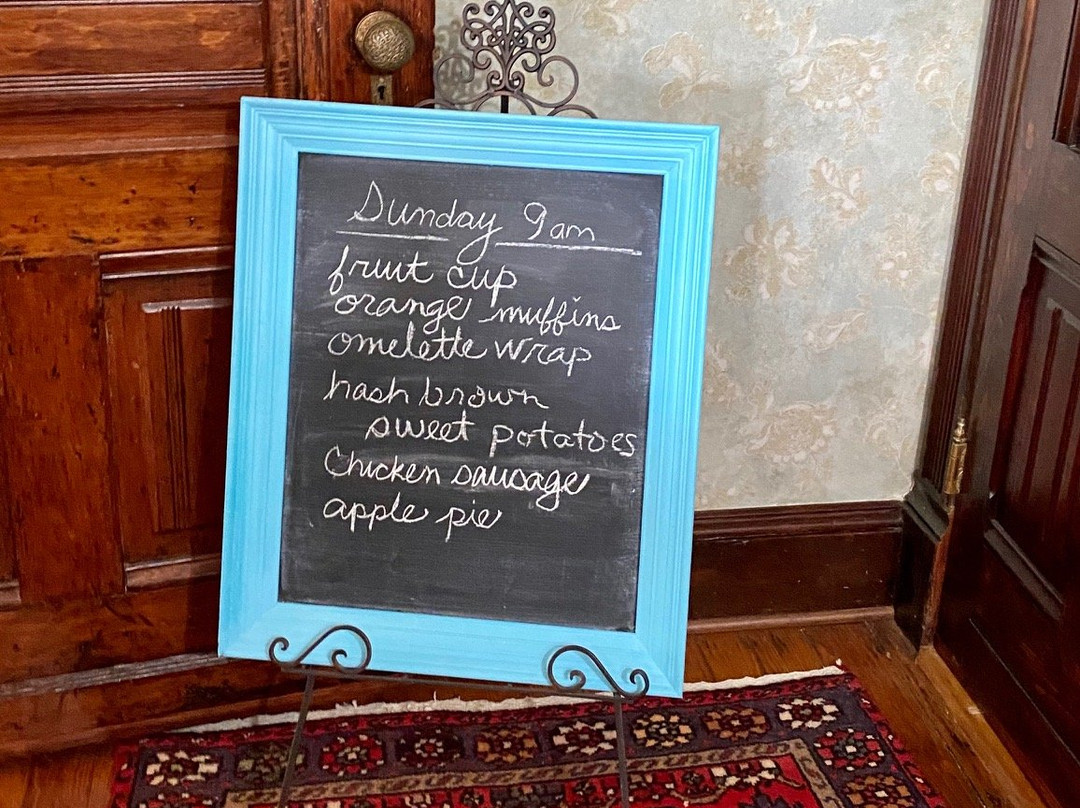 Sunday 9am
fruit cup
orange muffins
omelette wrap
hash brown
sweet potatoes
Chicken sausage
apple pie